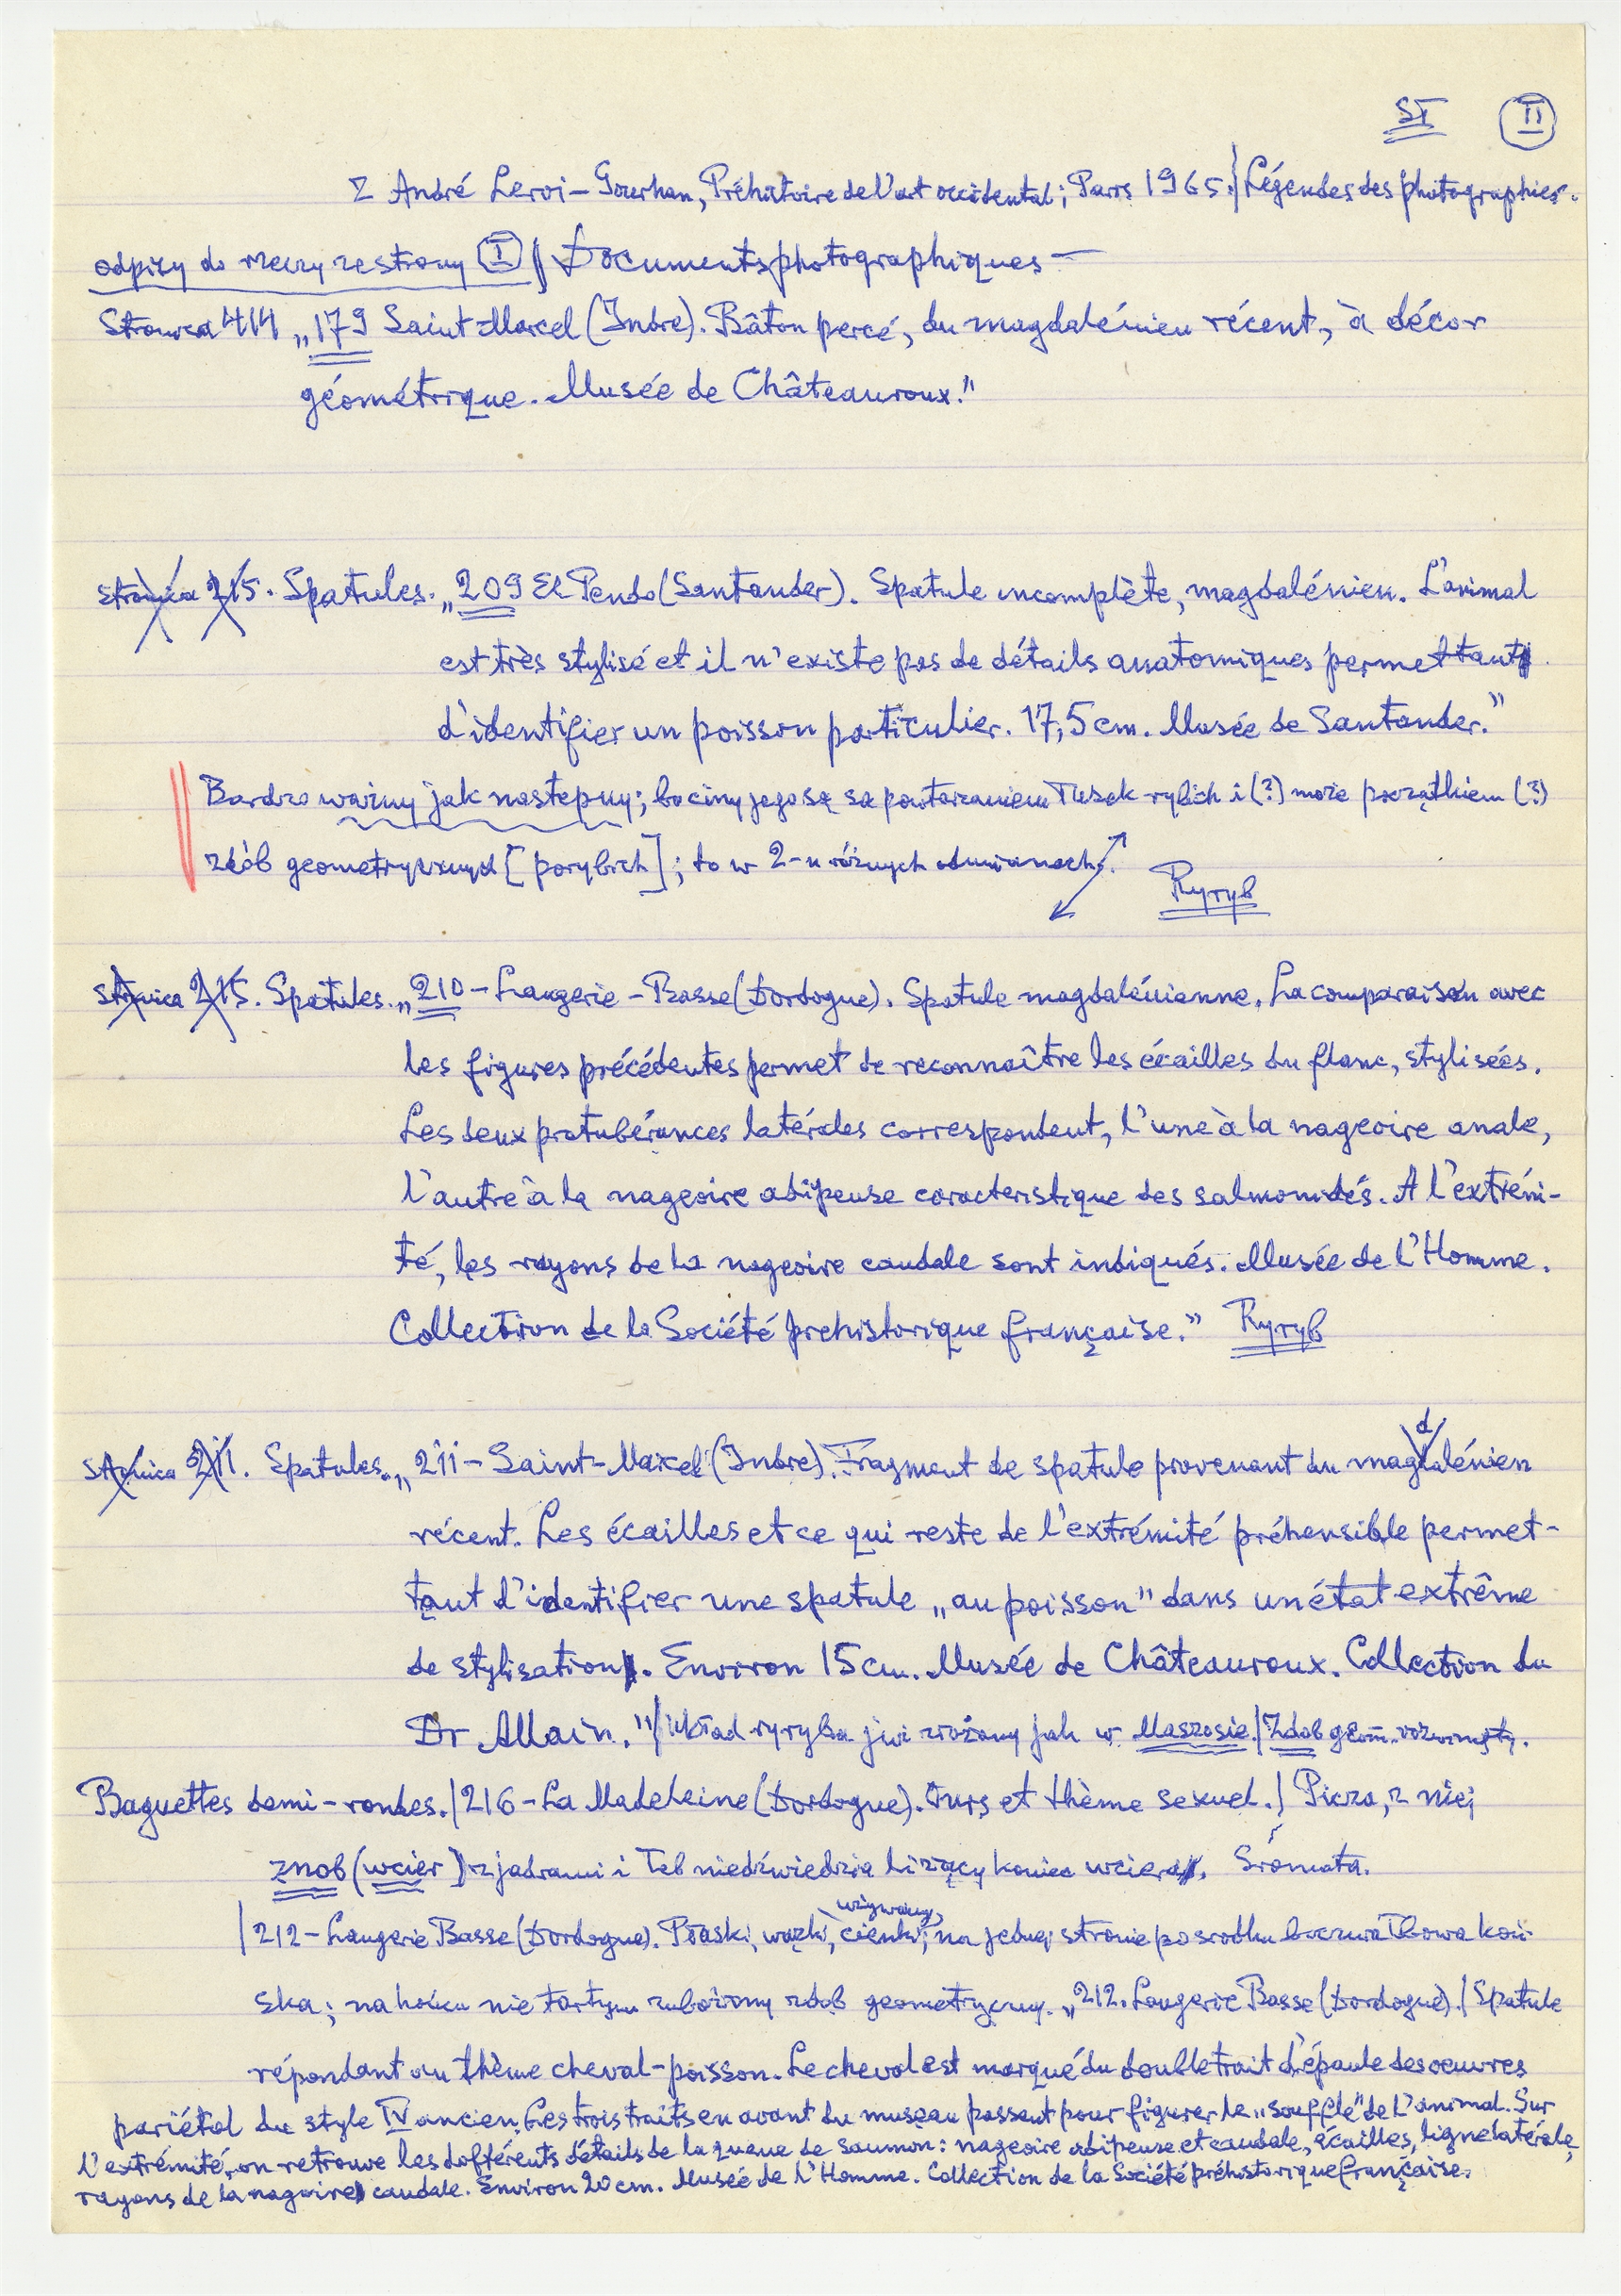 ST II
Z André Leroi-Gourhan, Préhistoire de l'art occidental; Paris 1965.} Légendes des photographies.
odpisy do rzeczy ze strony I || Documents photographiques —
Stronica 414 „179 Saint-Marcel (Indre). Bâton percé, du magdalénien récent, à décor
géométrique. Musée de Châteauroux."
stronica 215. Spatules. „209 El Pendo (Santander). Spatule incomplète, magdalénien. L'animal
est très stylisé et il n'existe pas de détails anatomiques permettant
d'identifier un poisson particulier. 17,5 cm. Musée de Santander."
Bardzo ważny jak następny; bo ciny jego są są powtórzeniem łusek rybich i (?) może początkiem (?)
zdób geometrycznych [porybich]; to w 2-u różnych odmianach.
Ryryb
stronica 215. Spatules. „210 - Laugerie-Basse (Dordogne). Spatule magdalénienne. La comparaison avec
les figures précédentes permet de reconnaître les écailles du flanc, stylisées.
Les deux protubérances latérales correspondent, l'une à la nageoire anale,
l'autre à la nageoire adipeuse caracteristique des salmonidés. A l'extrémi-
té, les rayons de la nageoire caudale sont indiqués. Musée de l'Homme.
Collection de la Société prehistorique française." Ryryb
stronica 211. Spatules. „211 - Saint-Marcel (Indre). Fragment de spatule provenant du magdalénien
récent. Les écailles et ce qui reste de l'extrémité préhensible permet-
tant d'identifier une spatule „au poisson" dans un état extrême
de stylisation. Environ 15 cm. Musée de Châteauroux. Collection du
Dr Allain."/ Układ ryryba już złożony jak w Maszosie./ Zdob geom. rozwinięty.
Baguettes demi-rondes./ 216 - La Madeleine (Dordogne). Ours et thème sexuel./ Picza, z niej
znob (wcier) z jądrami i łeb niedźwiedzia liżący koniec wciera. Śromota.
/ 212 - Laugerie Basse (Dordogne). Płaski, wązki, cienki, wżynany, na jednej stronie po srodku głowa koń-
ska; na końcu nie tartym zubożony zdob geometryczny. „212. Laugerie Basse (Dordogne)./ Spatule
répondant au thème cheval-poisson. Le cheval est marqué du double trait d'épaule des oeuvres
pariétal du style IV ancien. Les trois traits en avant du museau passent pour figurer le „souffle" de l'animal. Sur
l'extrémité, on retrouve les différents détails de la queue de saumon: nageoire adipeuse et caudale, écailles, ligne latérale,
rayons de la nagoire caudale. Environ 20 cm. Musée de l'Homme. Collection de la Société préhistorique française.